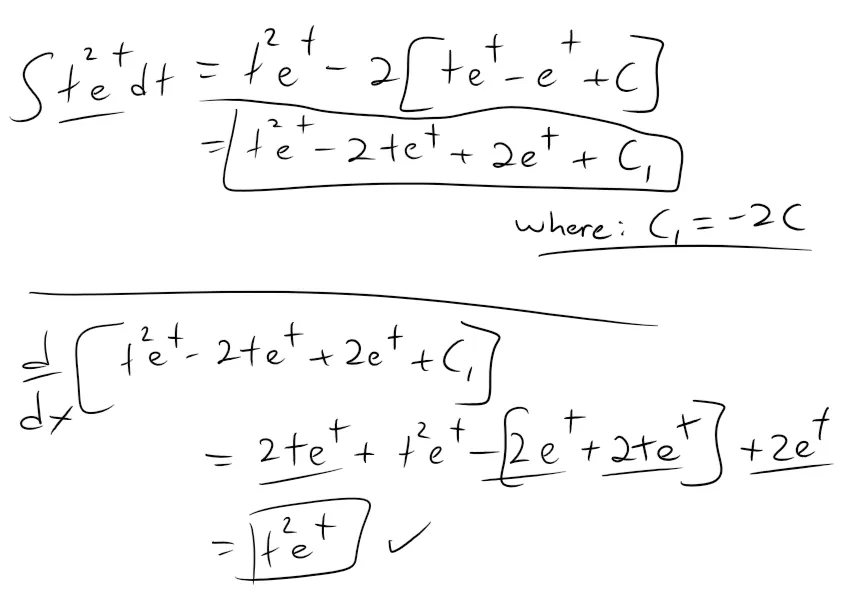 ∫ t²eᵗ dt = t²eᵗ - 2[teᵗ - eᵗ + C]
= t²eᵗ - 2teᵗ + 2eᵗ + C₁
where: C₁ = -2C
d/dx [t²eᵗ - 2teᵗ + 2eᵗ + C₁]
= 2teᵗ + t²eᵗ - [2eᵗ + 2teᵗ] + 2eᵗ
= t²eᵗ ✓